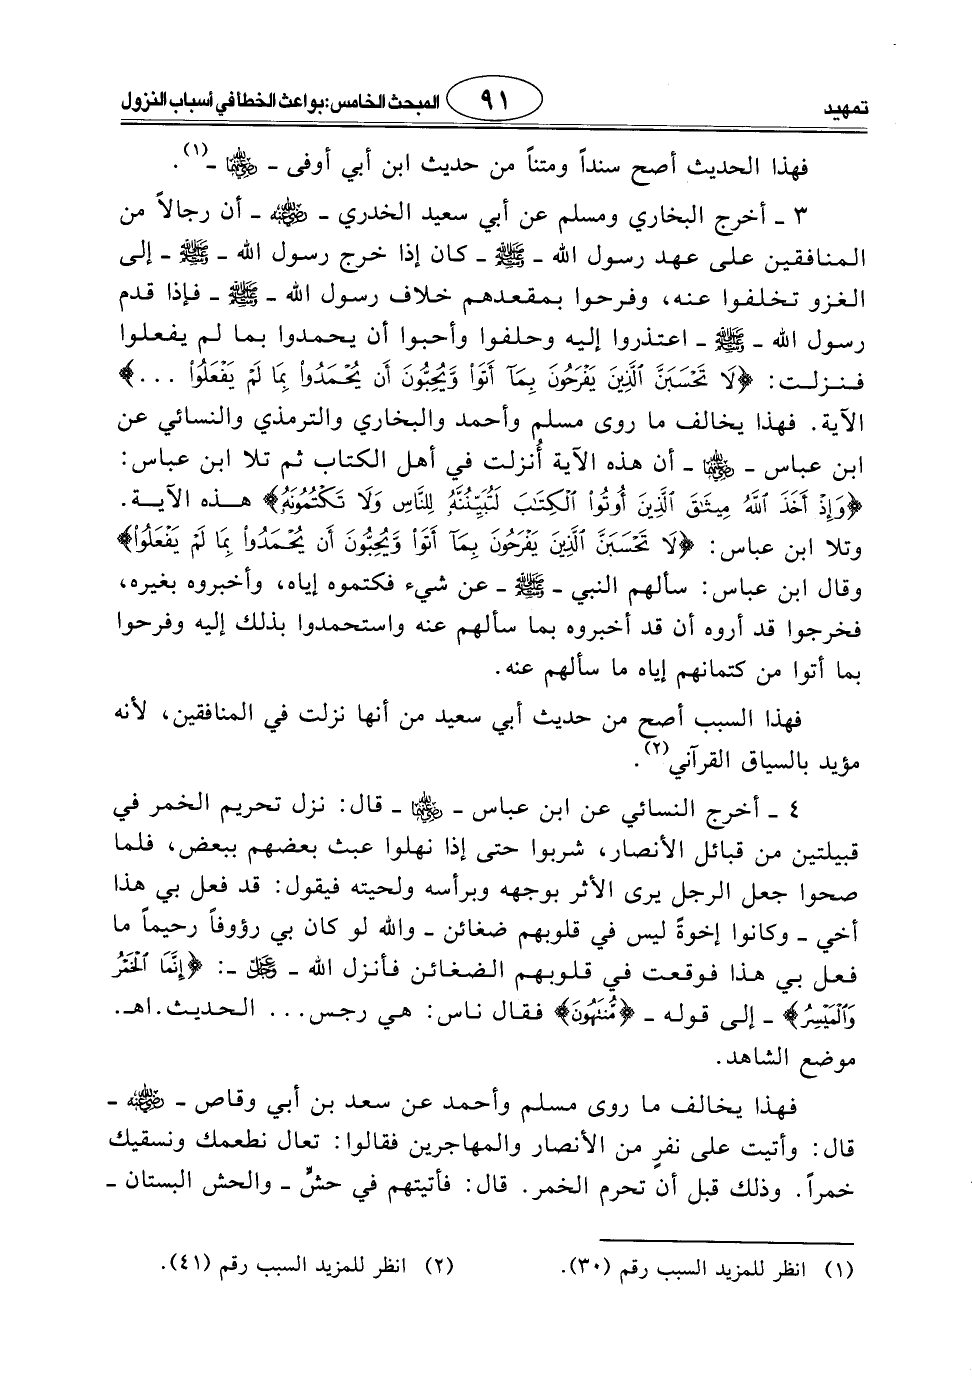 تمهيد ٩١ المبحث الخامس: بواعث الخطأ في أسباب النزول
فهذا الحديث أصح سنداً ومتناً من حديث ابن أبي أوفى ـ رضي الله عنهما ـ(١).
٣ ـ أخرج البخاري ومسلم عن أبي سعيد الخدري ـ رضي الله عنه ـ أن رجالاً من
المنافقين على عهد رسول الله ـ ﷺ ـ كان إذا خرج رسول الله ـ ﷺ ـ إلى
الغزو تخلفوا عنه، وفرحوا بمقعدهم خلاف رسول الله ـ ﷺ ـ فإذا قدم
رسول الله ـ ﷺ ـ اعتذروا إليه وحلفوا وأحبوا أن يحمدوا بما لم يفعلوا
فنزلت: ﴿لَا تَحْسَبَنَّ ٱلَّذِينَ يَفْرَحُونَ بِمَآ أَتَوا۟ وَّيُحِبُّونَ أَن يُحْمَدُوا۟ بِمَا لَمْ يَفْعَلُوا۟ ...﴾
الآية. فهذا يخالف ما روى مسلم وأحمد والبخاري والترمذي والنسائي عن
ابن عباس ـ رضي الله عنهما ـ أن هذه الآية أُنزلت في أهل الكتاب ثم تلا ابن عباس:
﴿وَإِذْ أَخَذَ ٱللَّهُ مِيثَٰقَ ٱلَّذِينَ أُوتُوا۟ ٱلْكِتَٰبَ لَتُبَيِّنُنَّهُۥ لِلنَّاسِ وَلَا تَكْتُمُونَهُۥ﴾ هذه الآية.
وتلا ابن عباس: ﴿لَا تَحْسَبَنَّ ٱلَّذِينَ يَفْرَحُونَ بِمَآ أَتَوا۟ وَّيُحِبُّونَ أَن يُحْمَدُوا۟ بِمَا لَمْ يَفْعَلُوا۟﴾
وقال ابن عباس: سألهم النبي ـ ﷺ ـ عن شيء فكتموه إياه، وأخبروه بغيره،
فخرجوا قد أروه أن قد أخبروه بما سألهم عنه واستحمدوا بذلك إليه وفرحوا
بما أتوا من كتمانهم إياه ما سألهم عنه.
فهذا السبب أصح من حديث أبي سعيد من أنها نزلت في المنافقين، لأنه
مؤيد بالسياق القرآني(٢).
٤ ـ أخرج النسائي عن ابن عباس ـ رضي الله عنهما ـ قال: نزل تحريم الخمر في
قبيلتين من قبائل الأنصار، شربوا حتى إذا نهلوا عبث بعضهم ببعض، فلما
صحوا جعل الرجل يرى الأثر بوجهه وبرأسه ولحيته فيقول: قد فعل بي هذا
أخي ـ وكانوا إخوةً ليس في قلوبهم ضغائن ـ والله لو كان بي رؤوفاً رحيماً ما
فعل بي هذا فوقعت في قلوبهم الضغائن فأنزل الله ـ عز وجل ـ: ﴿إِنَّمَا ٱلْخَمْرُ
وَٱلْمَيْسِرُ﴾ ـ إلى قوله ـ ﴿مُّنتَهُونَ﴾ فقال ناس: هي رجس... الحديث. اهـ.
موضع الشاهد.
فهذا يخالف ما روى مسلم وأحمد عن سعد بن أبي وقاص ـ رضي الله عنه ـ
قال: وأتيت على نفرٍ من الأنصار والمهاجرين فقالوا: تعال نطعمك ونسقيك
خمراً. وذلك قبل أن تحرم الخمر. قال: فأتيتهم في حشٍّ ـ والحش البستان ـ
(١) انظر للمزيد السبب رقم (٣٠). (٢) انظر للمزيد السبب رقم (٤١).